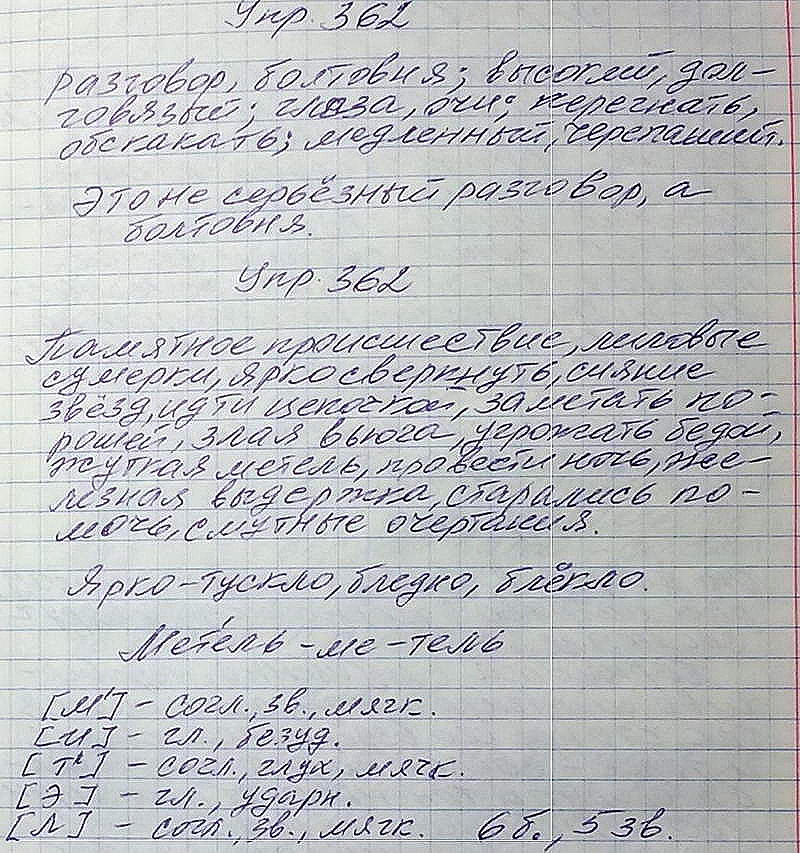 Упр. 362
разговор, болтовня; высокий, дол-
говязый; глаза, очи; перегнать,
обскакать; медленный, черепаший.
Это не серьёзный разговор, а
болтовня.
Упр. 362
Памятное происшествие, лиловые
сумерки, ярко сверкнуть, сияние
звёзд, идти цепочкой, заметать по-
рошей, злая вьюга, угрожать бедой,
жуткая метель, провести ночь, же-
лезная выдержка, старались по-
мочь, смутные очертания.
Ярко-тускло, бледно, блёкло.
Мете́ль - ме - тель
[м'] - согл., зв., мягк.
[и] - гл., безуд.
[т'] - согл., глух, мягк.
[э] - гл., ударн.
[л] - согл., зв., мягк. 6 б., 5 зв.